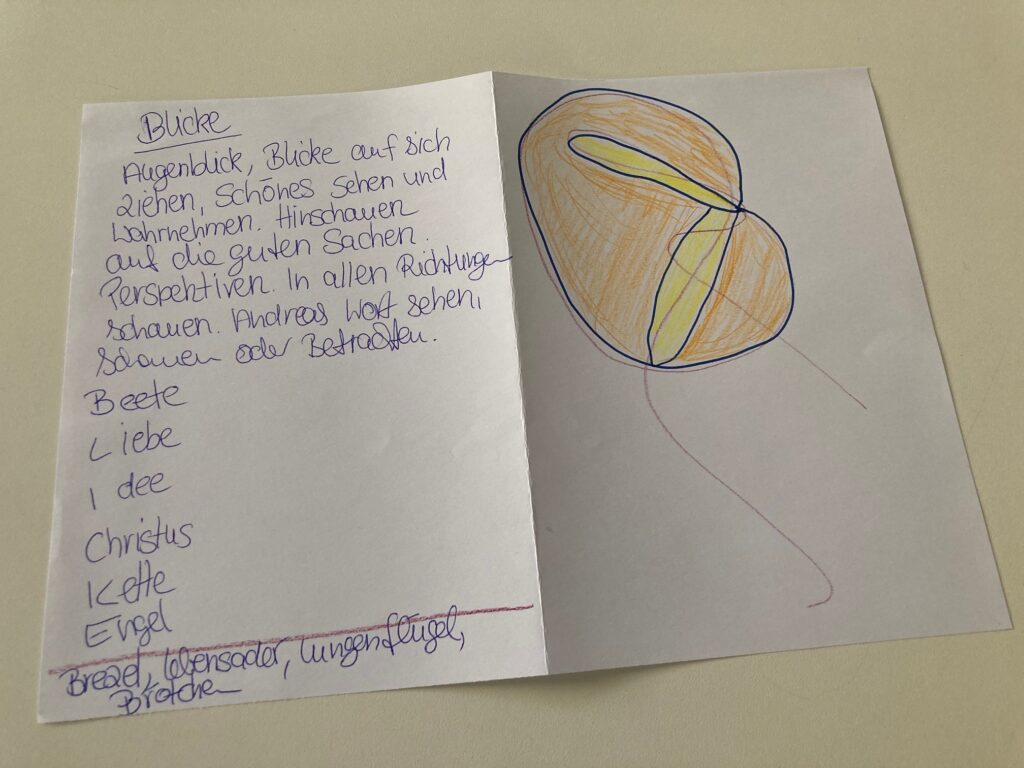 Blicke
Augenblick, Blicke auf sich
ziehen, Schönes sehen und
Wahrnehmen. Hinschauen
auf die guten Sachen.
Perspektiven. In allen Richtungen
schauen. Andreas Wort sehen,
schauen oder Betrachten.
Beete
Liebe
Idee
Christus
Kette
Engel
Brezel, Lebensader, Lungenflügel,
Brötchen